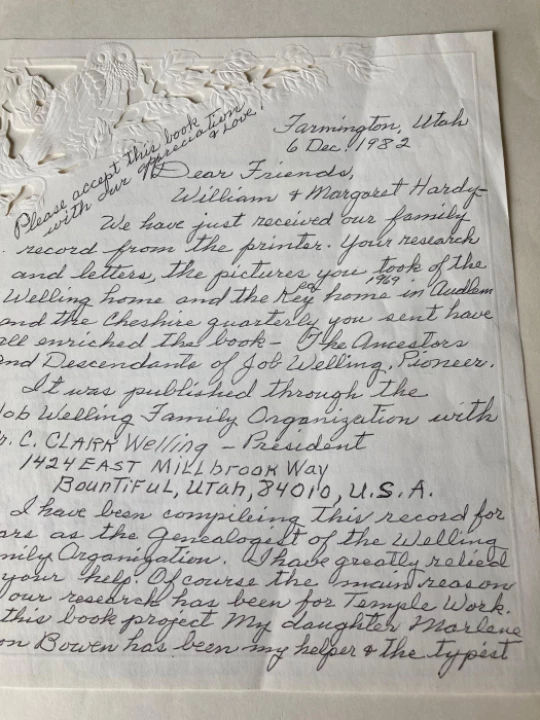 Please accept this book
with our appreciation
& Love!
Farmington, Utah
6 Dec. 1982
Dear Friends,
William & Margaret Hardy-
We have just received our family
record from the printer. Your research
and letters, the pictures you took of the
Welling home and the Key home 1969 in Audlem
and the Cheshire quarterly you sent have
all enriched the book - The Ancestors
and Descendants of Job Welling, Pioneer.
It was published through the
Job Welling Family Organization with
r. C. CLARK Welling - President
1424 EAST Millbrook Way
BOUNTIFUL, UTAH, 84010, U.S.A.
I have been compileing this record for
ars as the Genealogest of the Welling
mily Organization. I have greatly relied
your help. Of course the main reason
our research has been for Temple Work.
this book project My daughter Marlene
on Bowen has been my helper & the typist